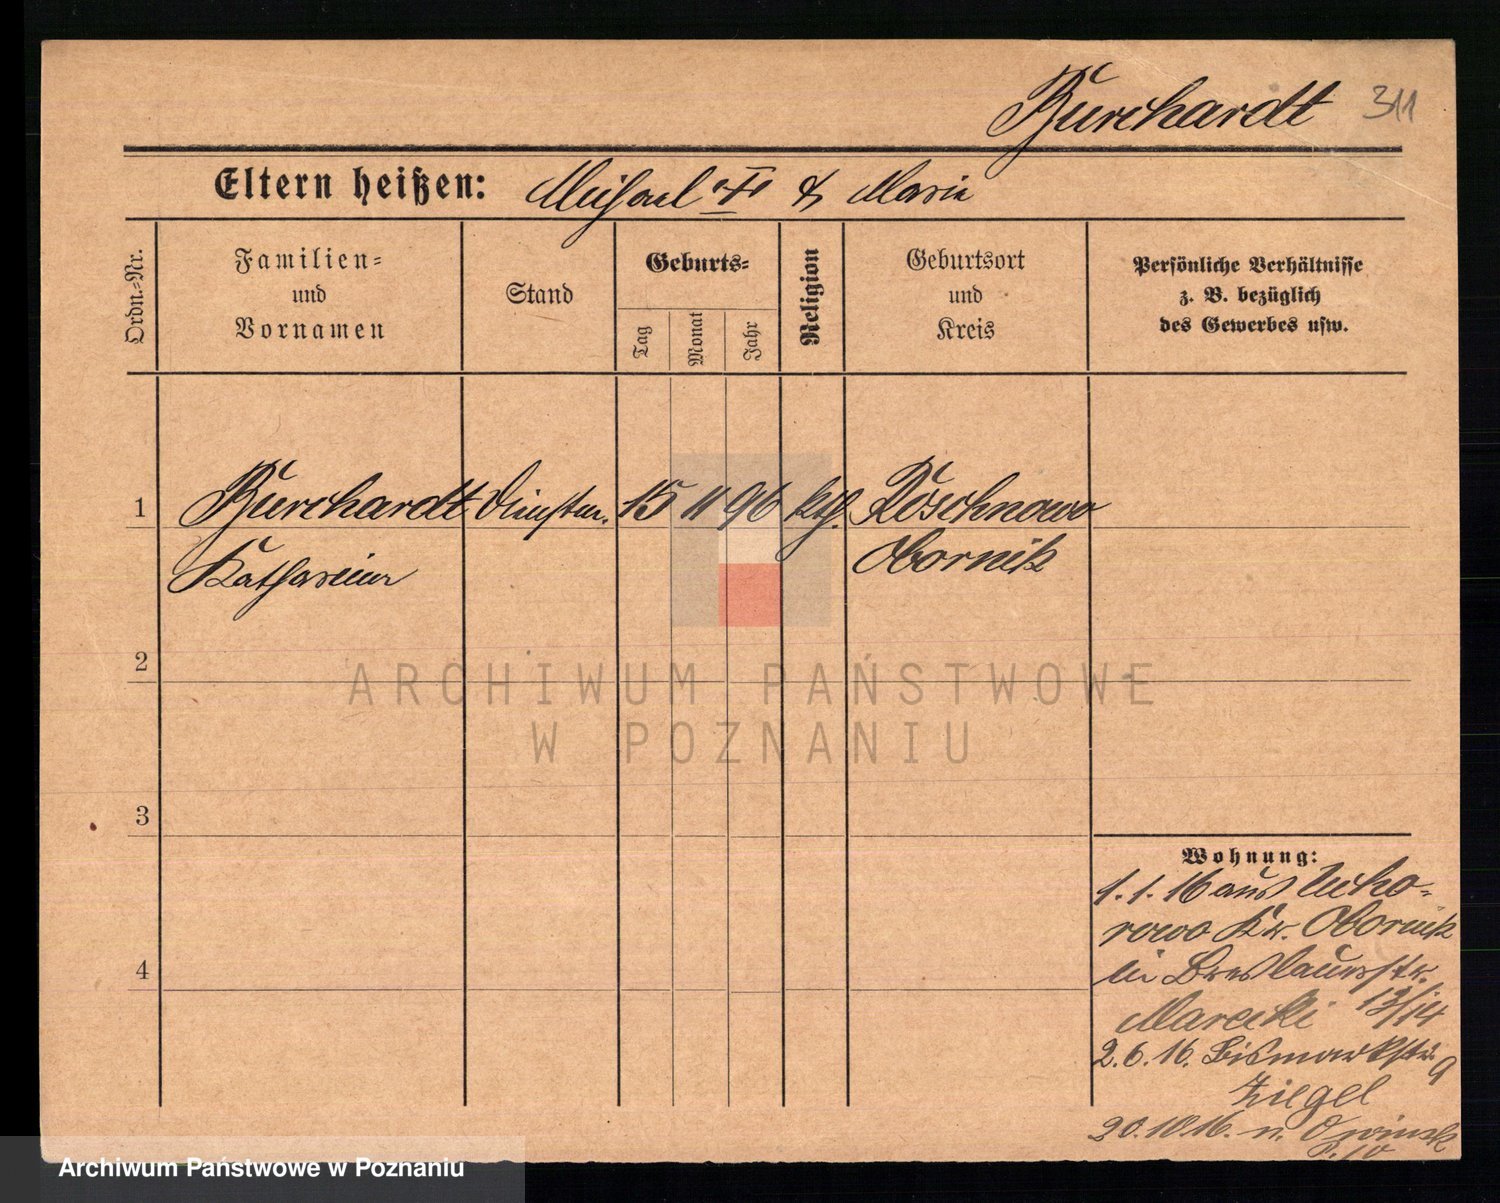 Burchardt 311
Eltern heißen: Michael & Marie
Ordn.-Nr.
Familien-
und
Vornamen
Stand
Geburts-
Tag
Monat
Jahr
Religion
Geburtsort
und
Kreis
Persönliche Verhältnisse
z. B. bezüglich
des Gewerbes usw.
1 Burchardt 15 11 96 kth. Roschnowo
Katharina Obornik
2
3
4
Wohnung:
1.1.16 aus Ucho-
rowo Kr. Obornik
bei Breslauerstr.
Marecki 13/14
2.6.16. Bismarkstr. 9
Ziegel
20.10.16. n. Owinsk
ARCHIWUM PAŃSTWOWE
W POZNANIU
Archiwum Państwowe w Poznaniu